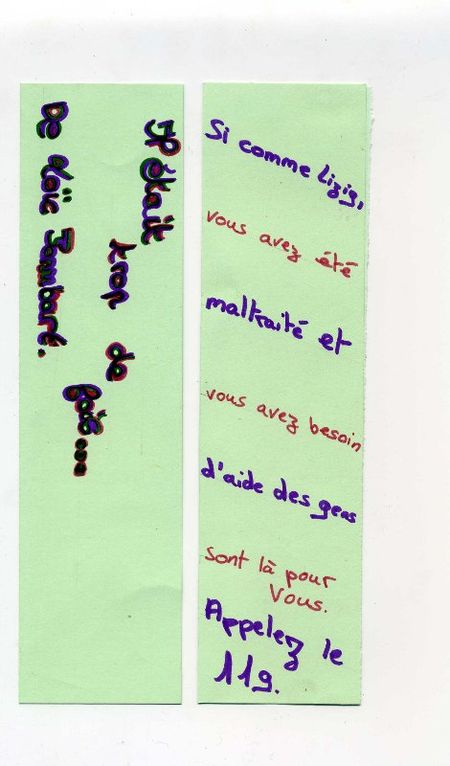 Il était
trop
de
fois...
De Loïc Jombart.
Si comme Lizig,
vous avez été
maltraité et
vous avez besoin
d'aide des gens
sont là pour
vous.
Appelez le
119.